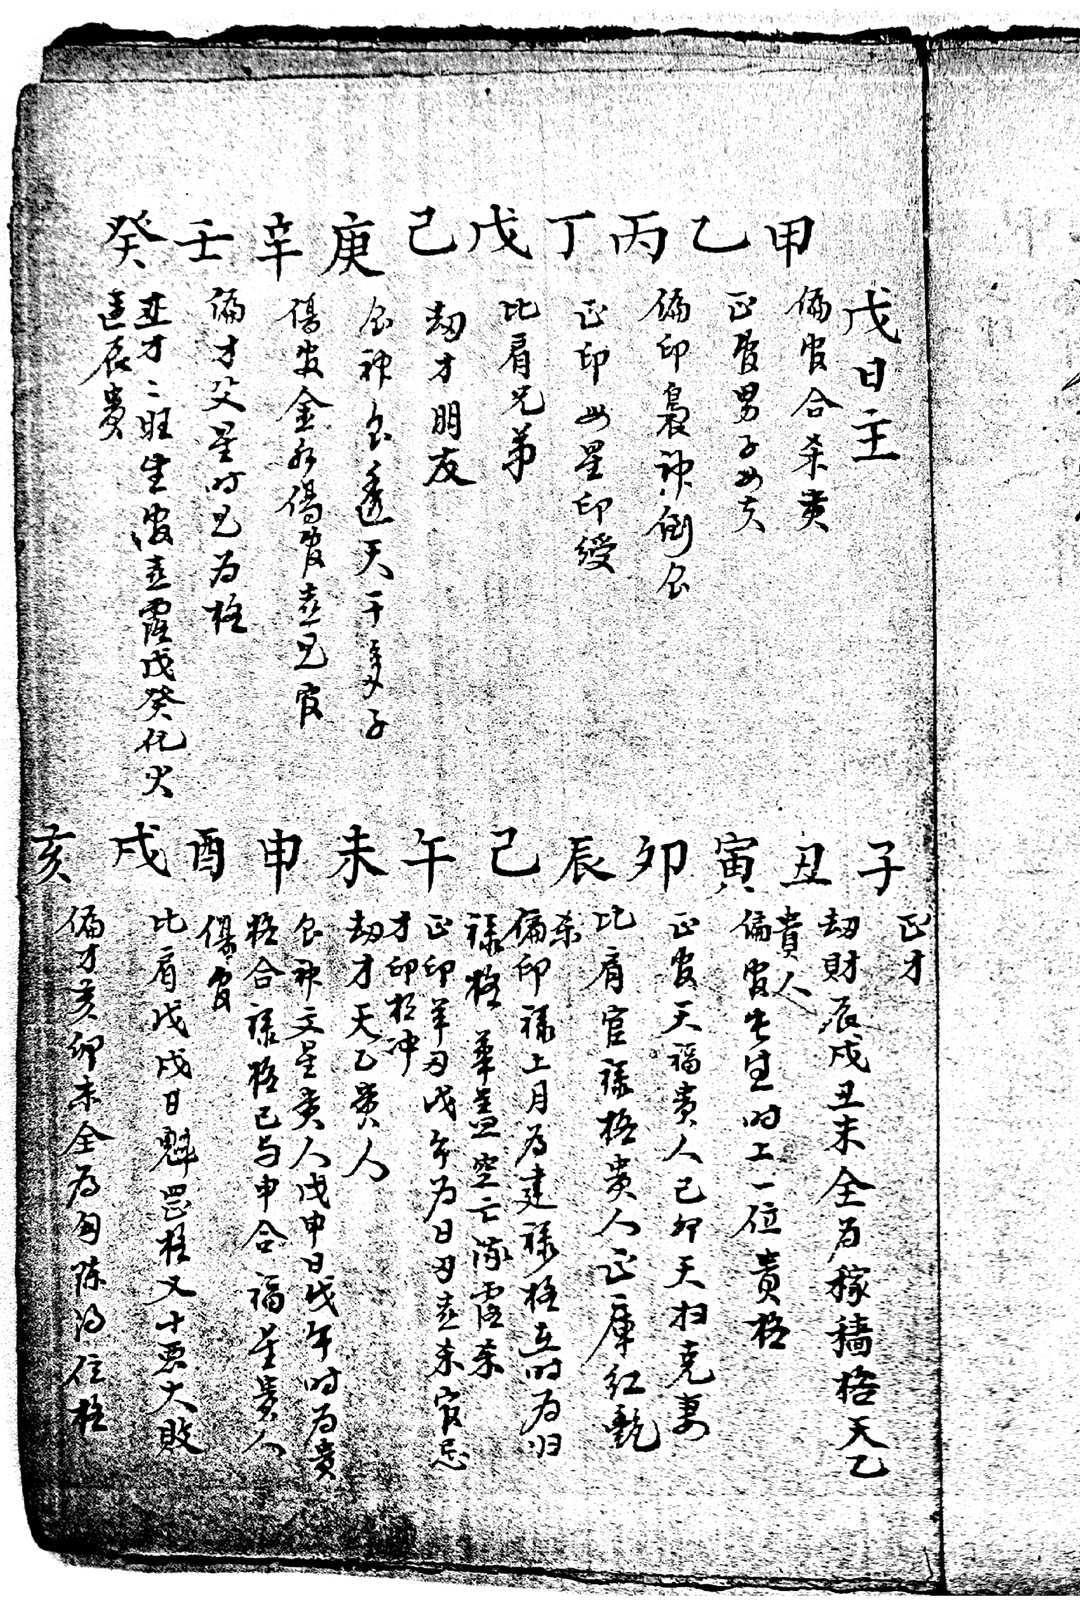 戊日主
甲 偏官合杀貴
乙 正官男子女夫
丙 偏印梟神倒食
丁 正印母星印綬
戊 比肩兄弟
己 劫才朋友
庚 食神食透天干多子
辛 傷官金水傷官喜見官
壬 偏才父星时見为格
癸 正才才旺生官喜露戊癸化火
貴
子 正才
丑 劫財辰戌丑未全为稼穡格天乙
貴人
寅 偏官長生时上一位貴格
卯 正官天福貴人己卯天扫克妻
辰 比肩官祿格貴人正庫红艷
杀
己 偏印禄上月为建禄格在时为归
禄格華盖空亡露杀
午 正印羊刃戊午为日刃喜杀官忌
才印格冲
未 劫才天乙貴人
申 食神文星貴人戊申日戊午时为貴
格合禄格己与申合福星貴人
酉 傷官
戌 比肩戊戌日魁罡格又十恶大敗
亥 偏才亥卯未全为勾陈得位格